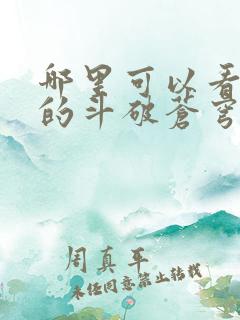 哪里可以看
的斗破蒼穹
周真平
未经同意禁止转载